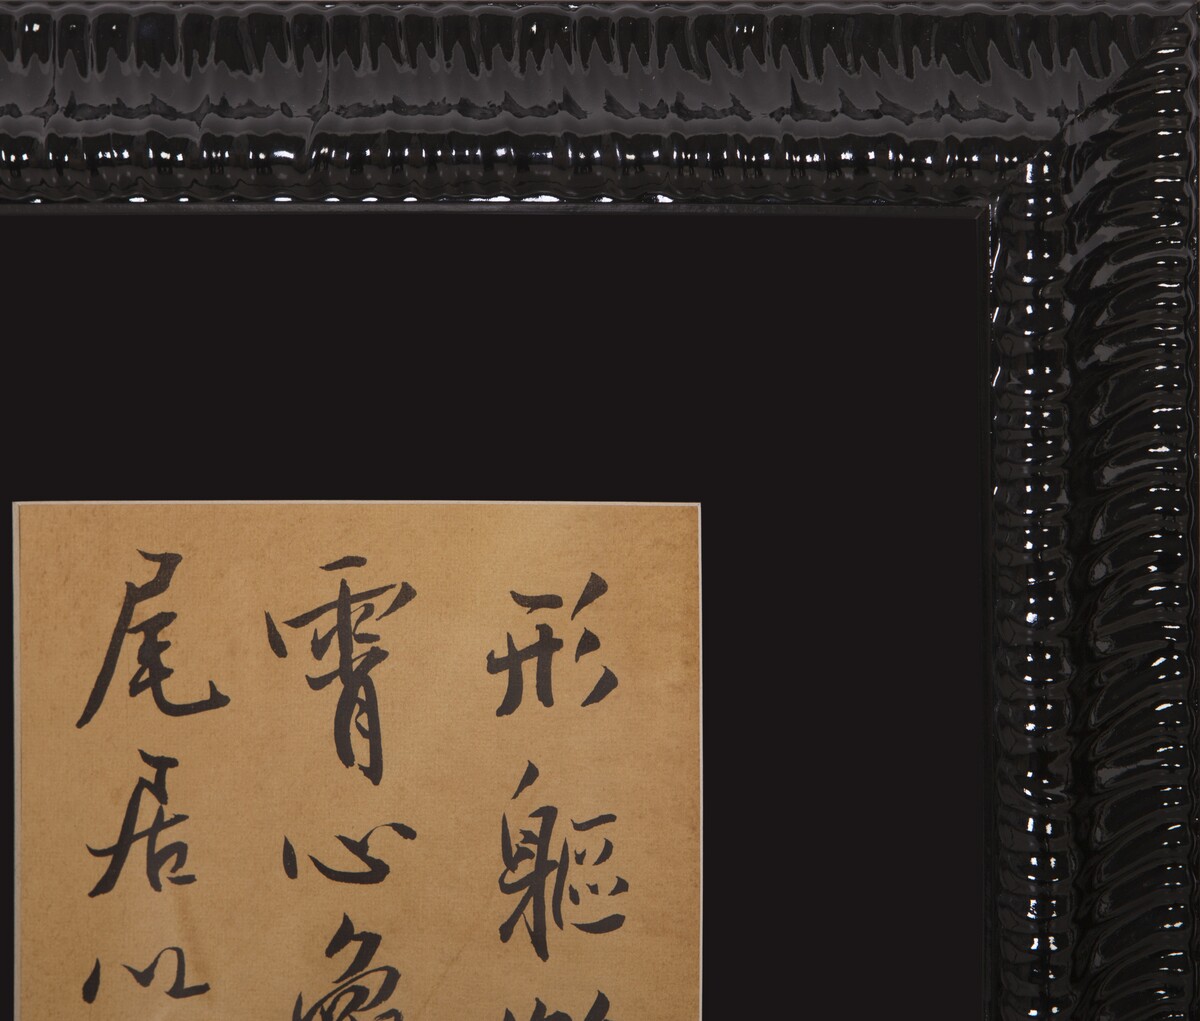 形軀
霄心
尾居以